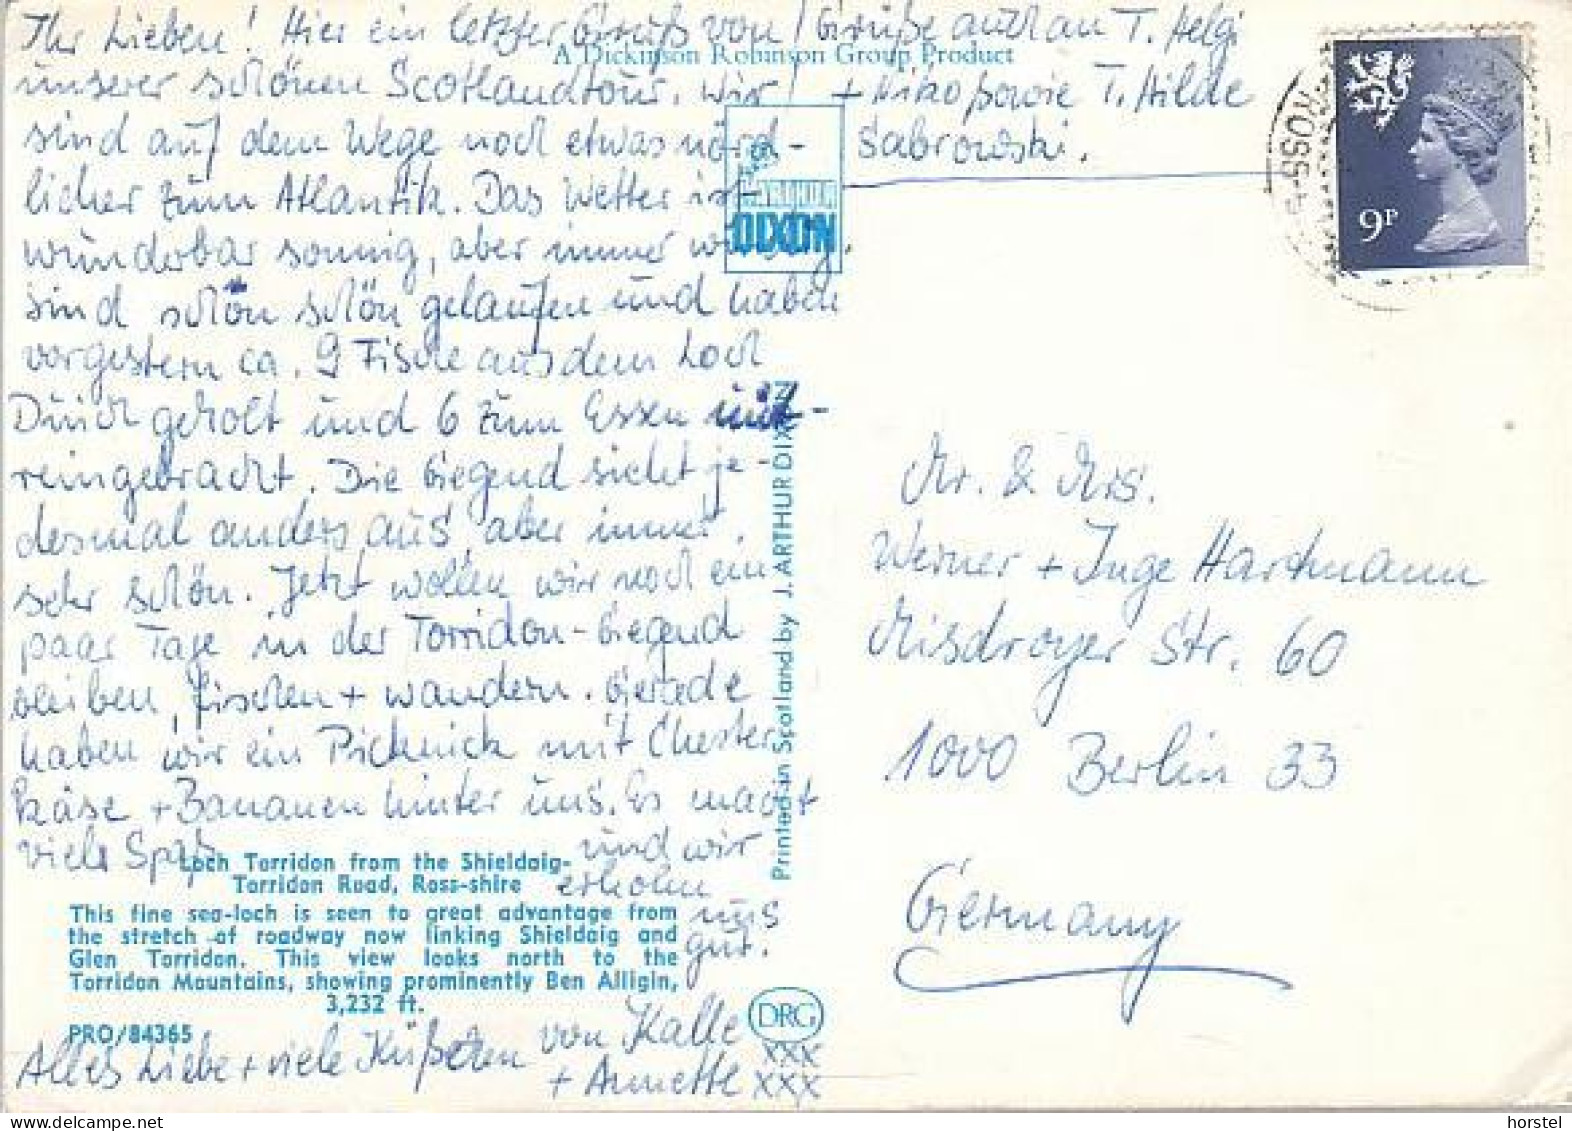 Ihr Lieben! Hier ein letzter Gruß von
unserer schönen Scotlandtour. Wir
sind auf dem Wege noch etwas nörd-
licher zum Atlantik. Das Wetter ist
wunderbar sonnig, aber immer windig.
Sind schön schön gelaufen und haben
vorgestern ca. 9 Fische aus dem Loch
Duich geholt und 6 zum Essen mit-
reingebracht. Die Gegend sieht je-
desmal anders aus, aber immer
sehr schön. Jetzt wollen wir noch ein
paar Tage in der Torridon-Gegend
bleiben, fischen + wandern. Gerade
haben wir ein Picknick mit Chester
käse + Bananen hinter uns. Es macht
viele Spaß und wir
erholen
uns
gut.
Alles Liebe + viele Küßchen von Kalle
+ Annette
xxx
xxx
Grüße auch an T. Helgi
+ Niko sowie T. Hilde
Sabrowski.
A Dickinson Robinson Group Product
DIXON
Printed in Scotland by J. ARTHUR DIXON
Loch Torridon from the Shieldaig-
Torridon Road, Ross-shire
This fine sea-loch is seen to great advantage from
the stretch of roadway now linking Shieldaig and
Glen Torridon. This view looks north to the
Torridon Mountains, showing prominently Ben Alligin,
3,232 ft.
PRO/84365
DRG
9P
ROSS-S
Mr. & Mrs.
Werner + Inge Hartmann
Misdroyer Str. 60
1000 Berlin 33
Germany
horstel